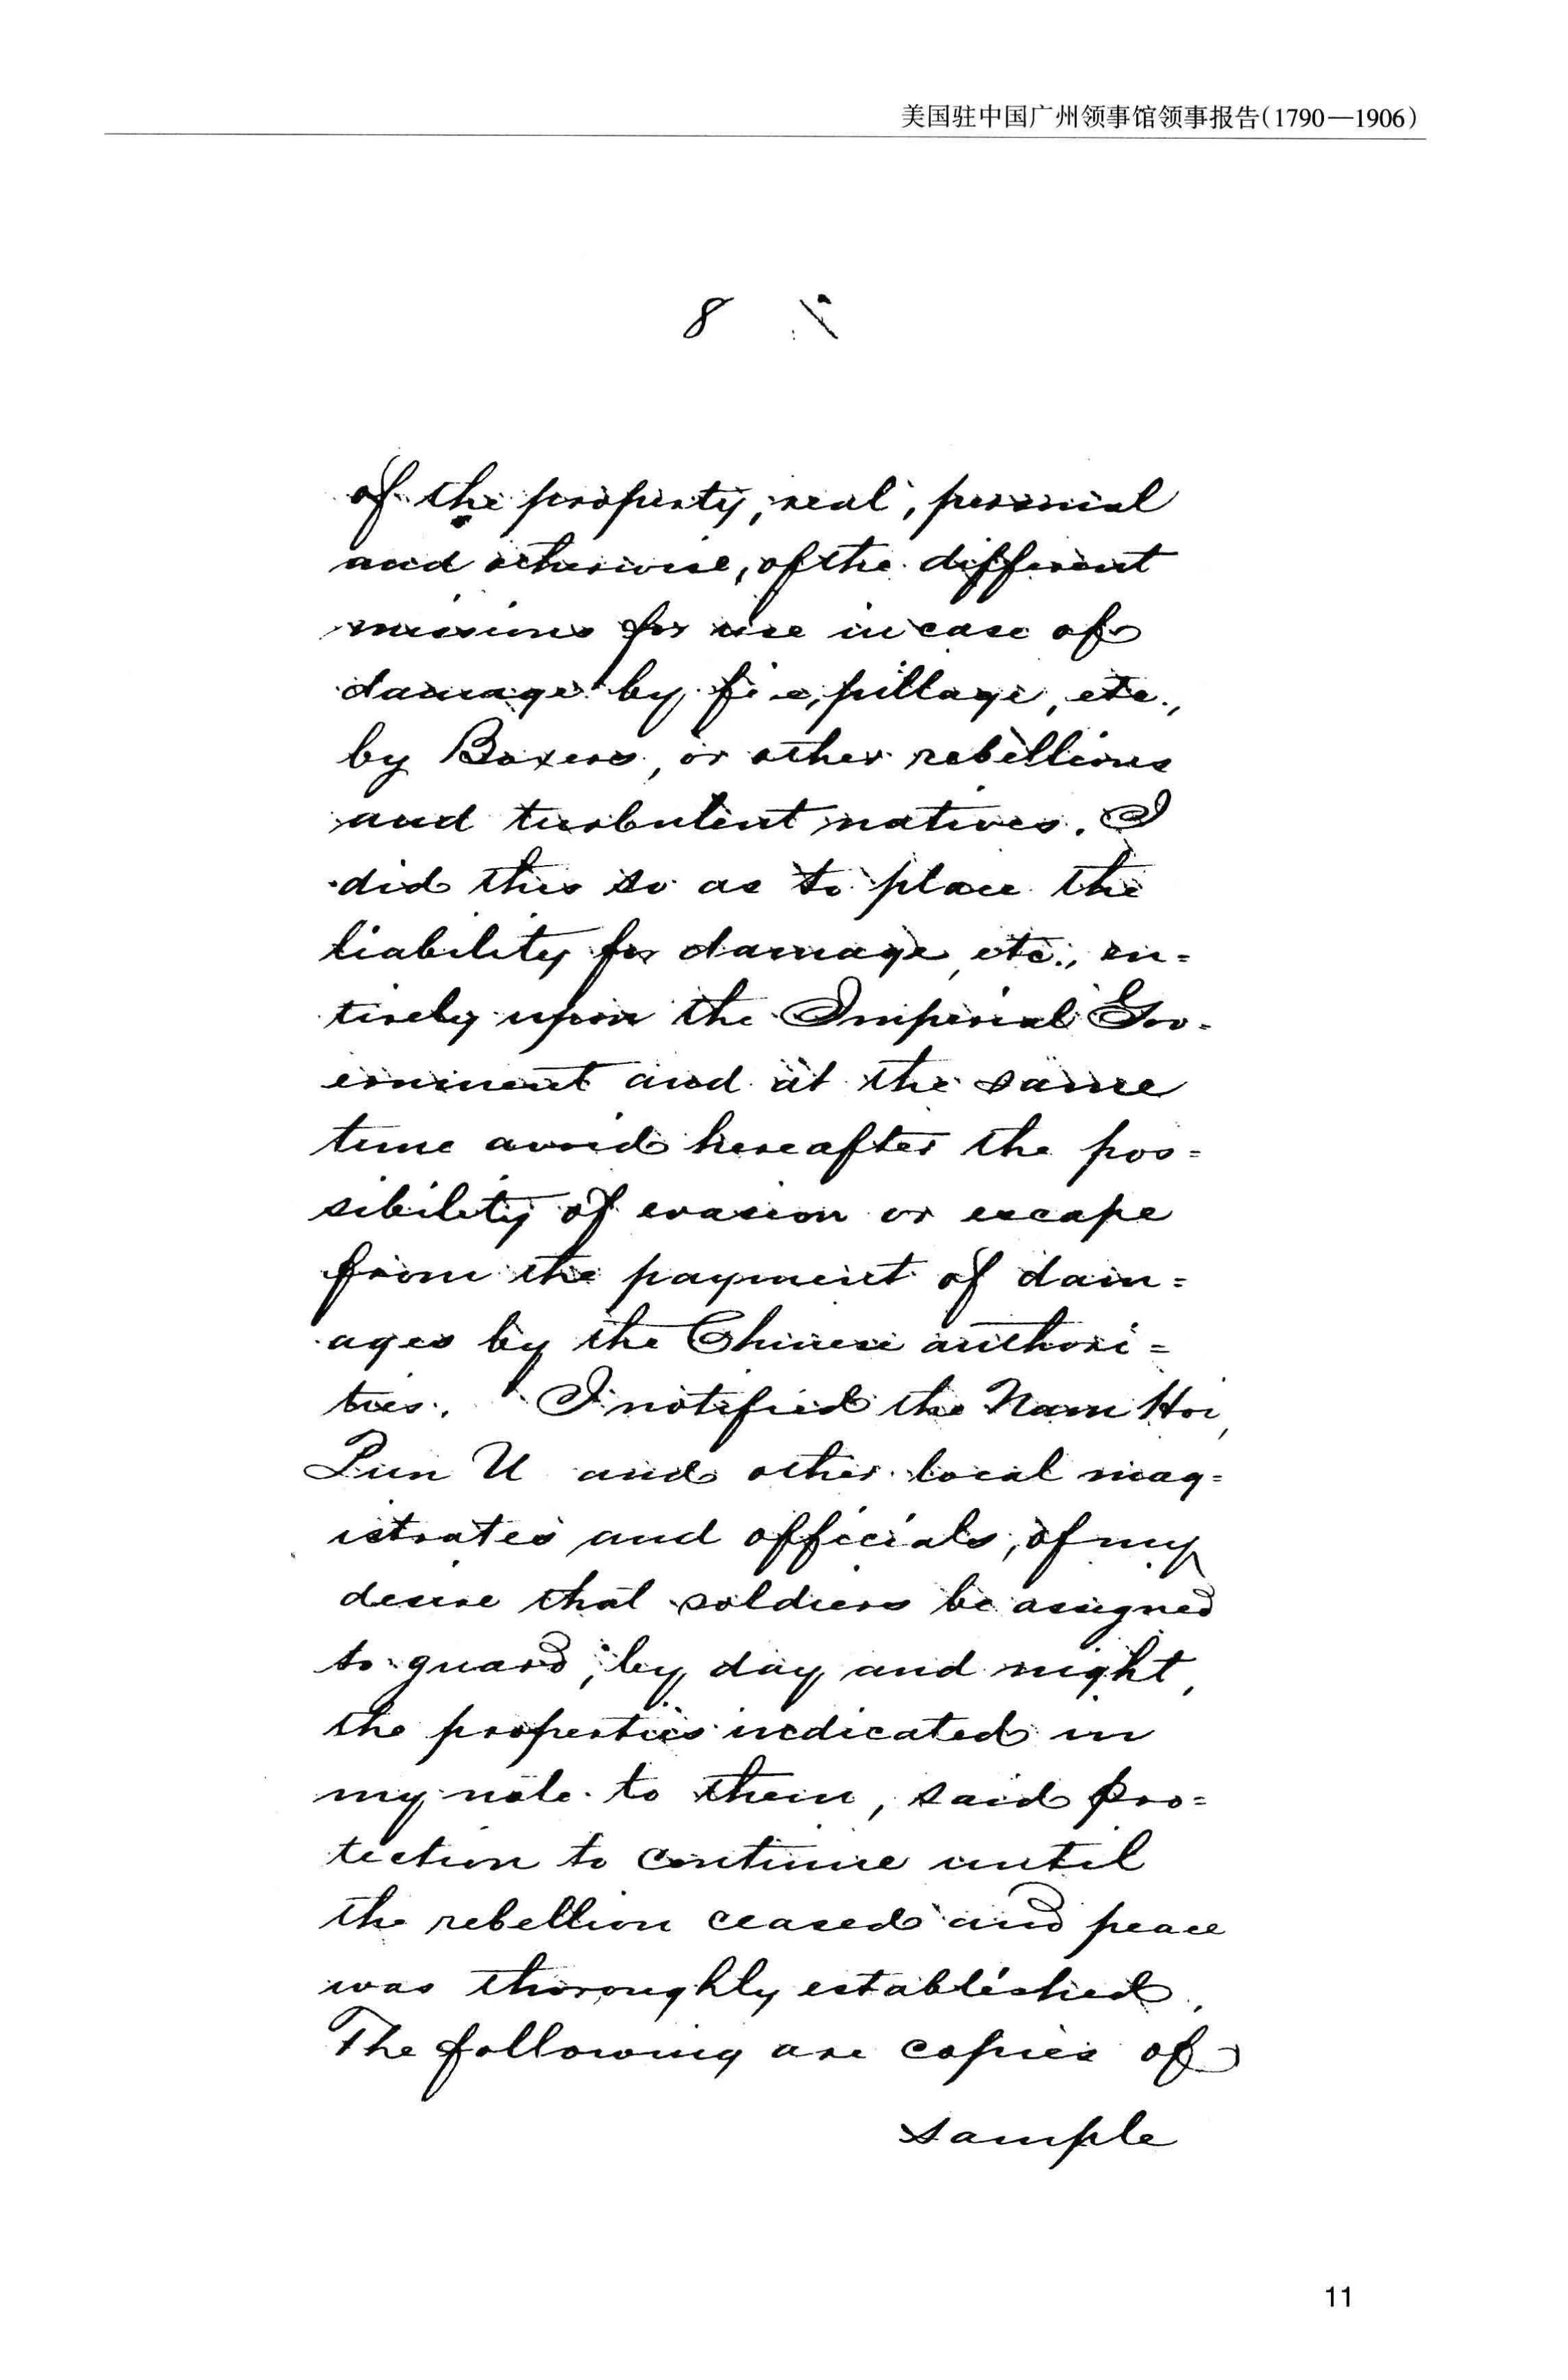 美国驻中国广州领事馆领事报告(1790—1906)
8
of the property, real, personal
and otherwise, of the different
missions for use in case of
damage by fire, pillage, etc.,
by Boxers, or other rebellious
and turbulent natives. I
did this so as to place the
liability for damage, etc., en=
tirely upon the Imperial Gov-
ernment and at the same
time avoid hereafter the pos=
sibility of evasion or escape
from the payment of dam=
ages by the Chinese authori=
ties. I notified the Nam Hoi,
Pun U and other local mag=
istrates and officials, of my
desire that soldiers be assigned
to guard, by day and night,
the properties indicated in
my note to them, said pro=
tection to continue until
the rebellion ceased and peace
was thoroughly established.
The following are copies of
sample
11